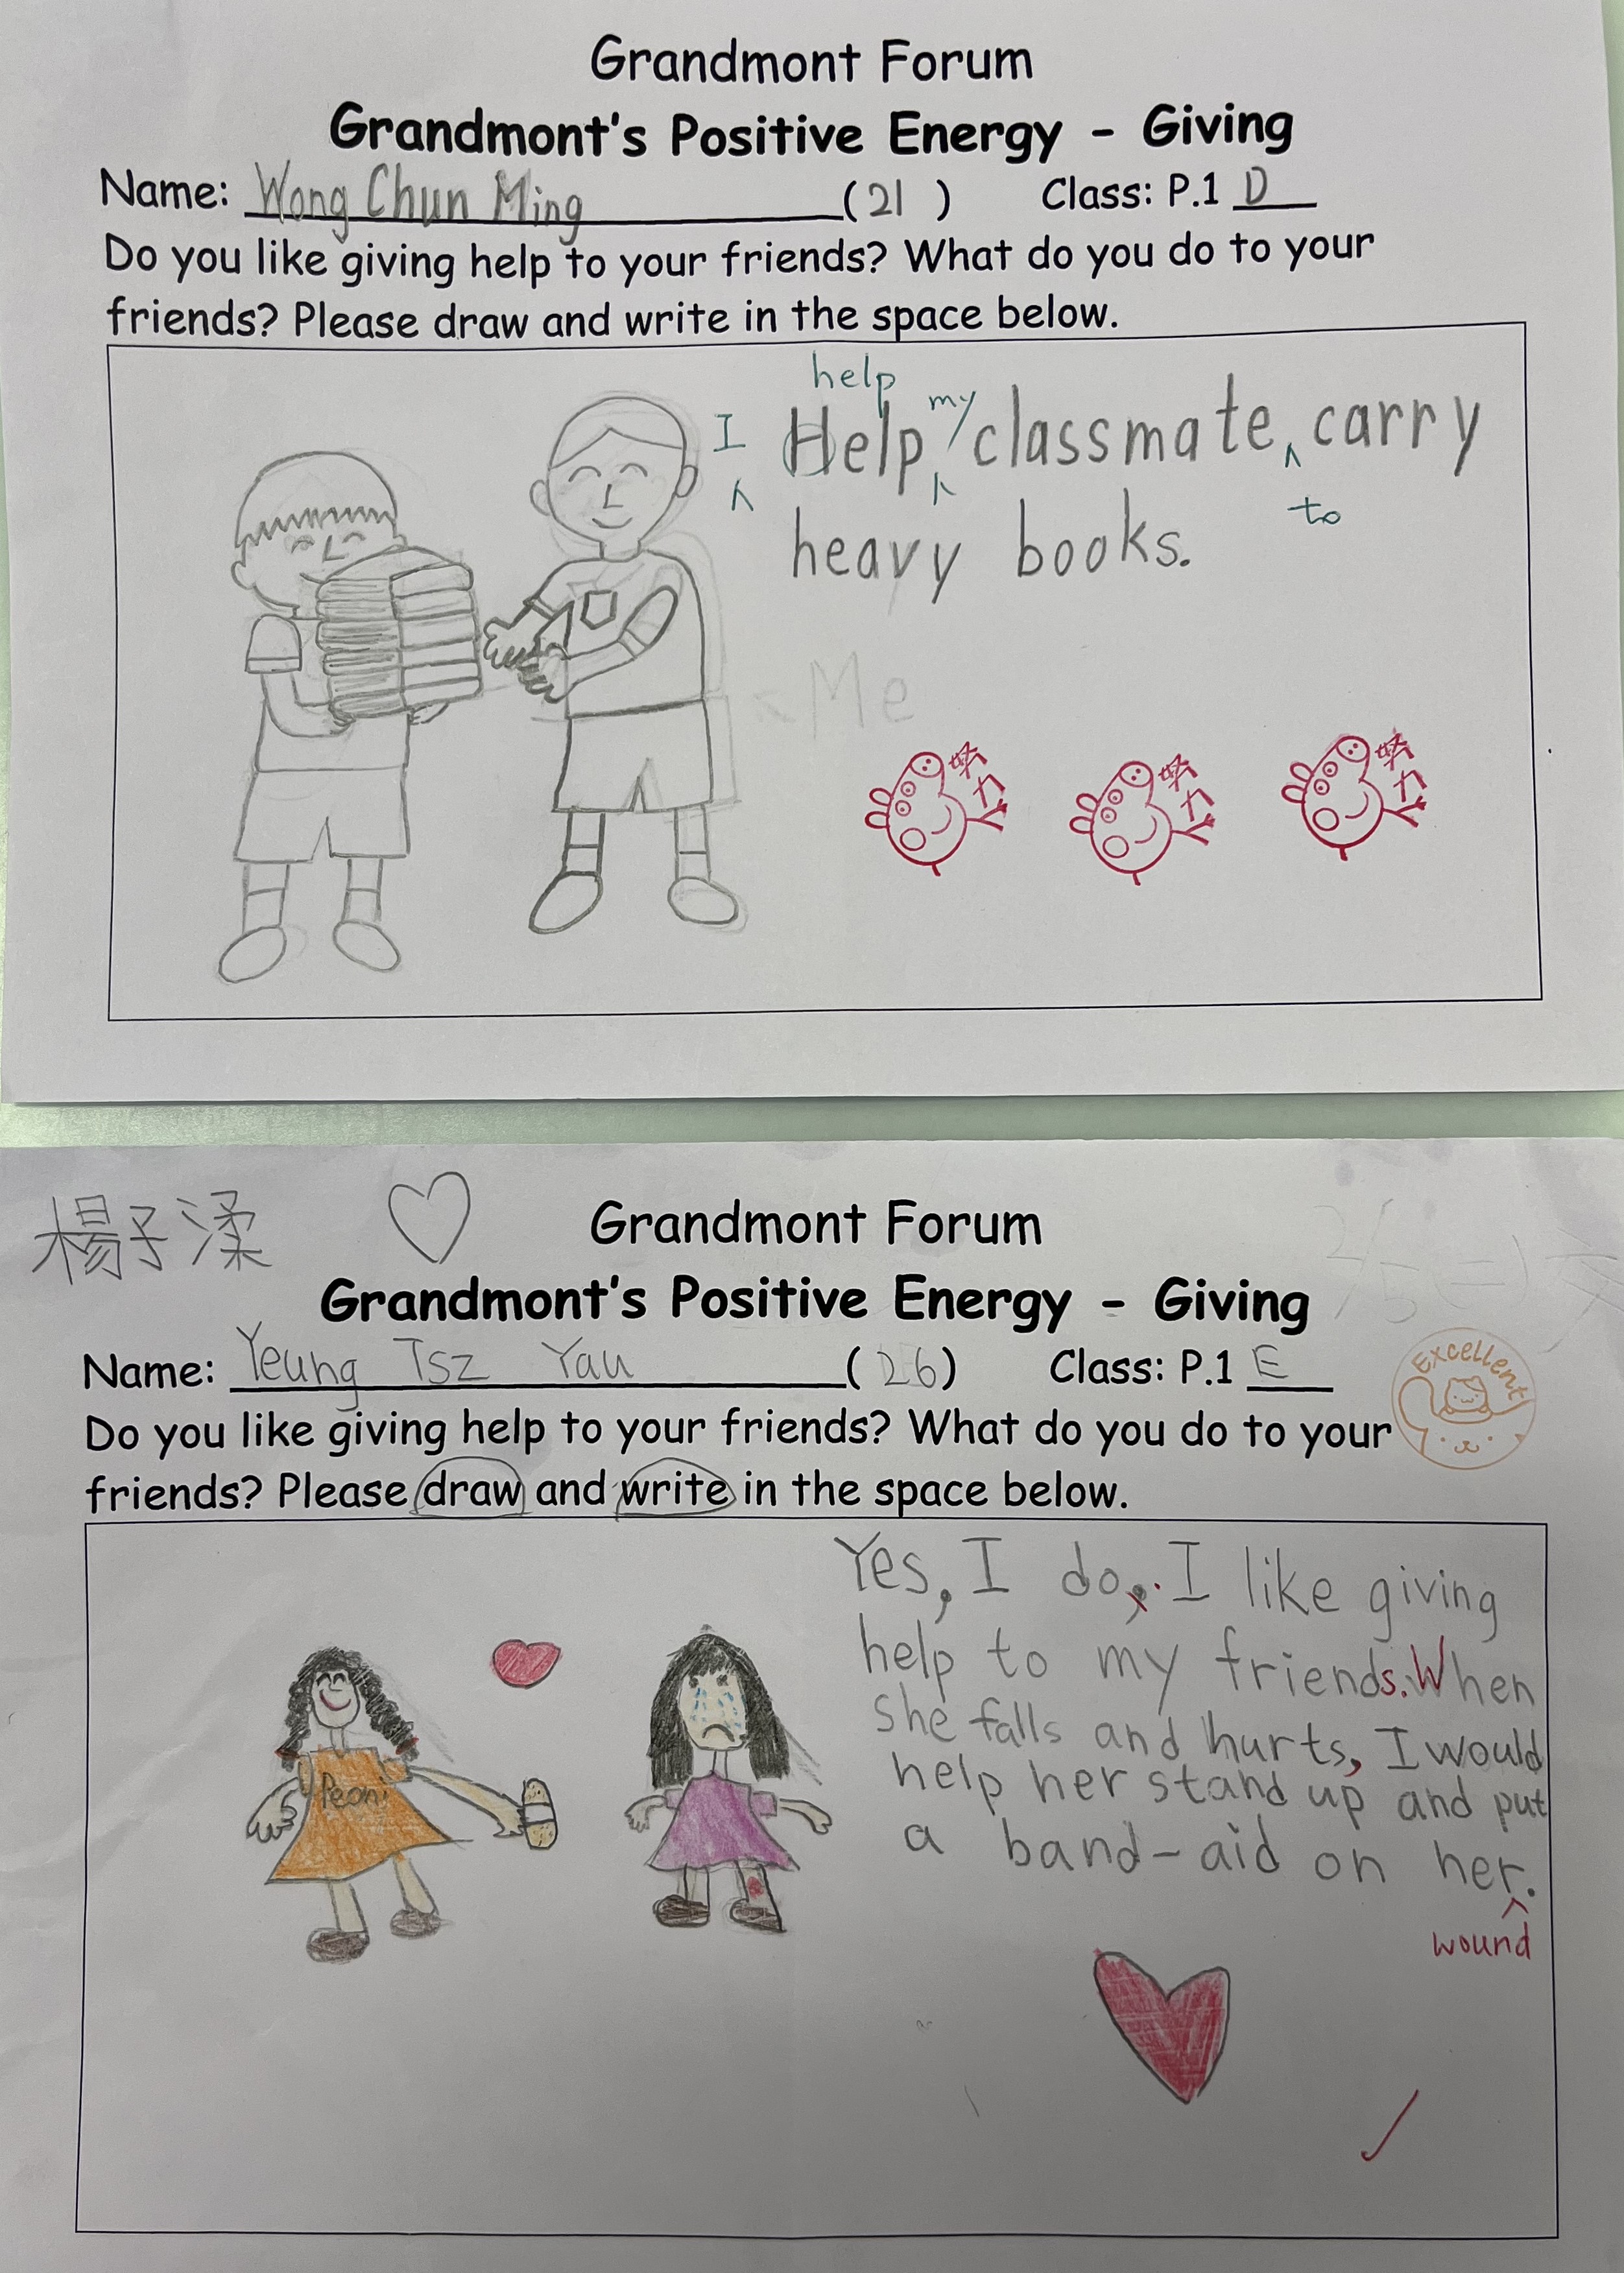 Grandmont Forum
Grandmont's Positive Energy - Giving
Name: Wong Chun Ming (21) Class: P.1 D
Do you like giving help to your friends? What do you do to your
friends? Please draw and write in the space below.
help
I Help my classmate carry
to
heavy books.
Me
努力 努力 努力
楊子渘
Grandmont Forum
Grandmont's Positive Energy - Giving
Name: Yeung Tsz Yau (26) Class: P.1 E
Excellent
Do you like giving help to your friends? What do you do to your
friends? Please draw and write in the space below.
Yes, I do. I like giving
help to my friends. When
she falls and hurts, I would
help her stand up and put
a band-aid on her.
wound
Peoni